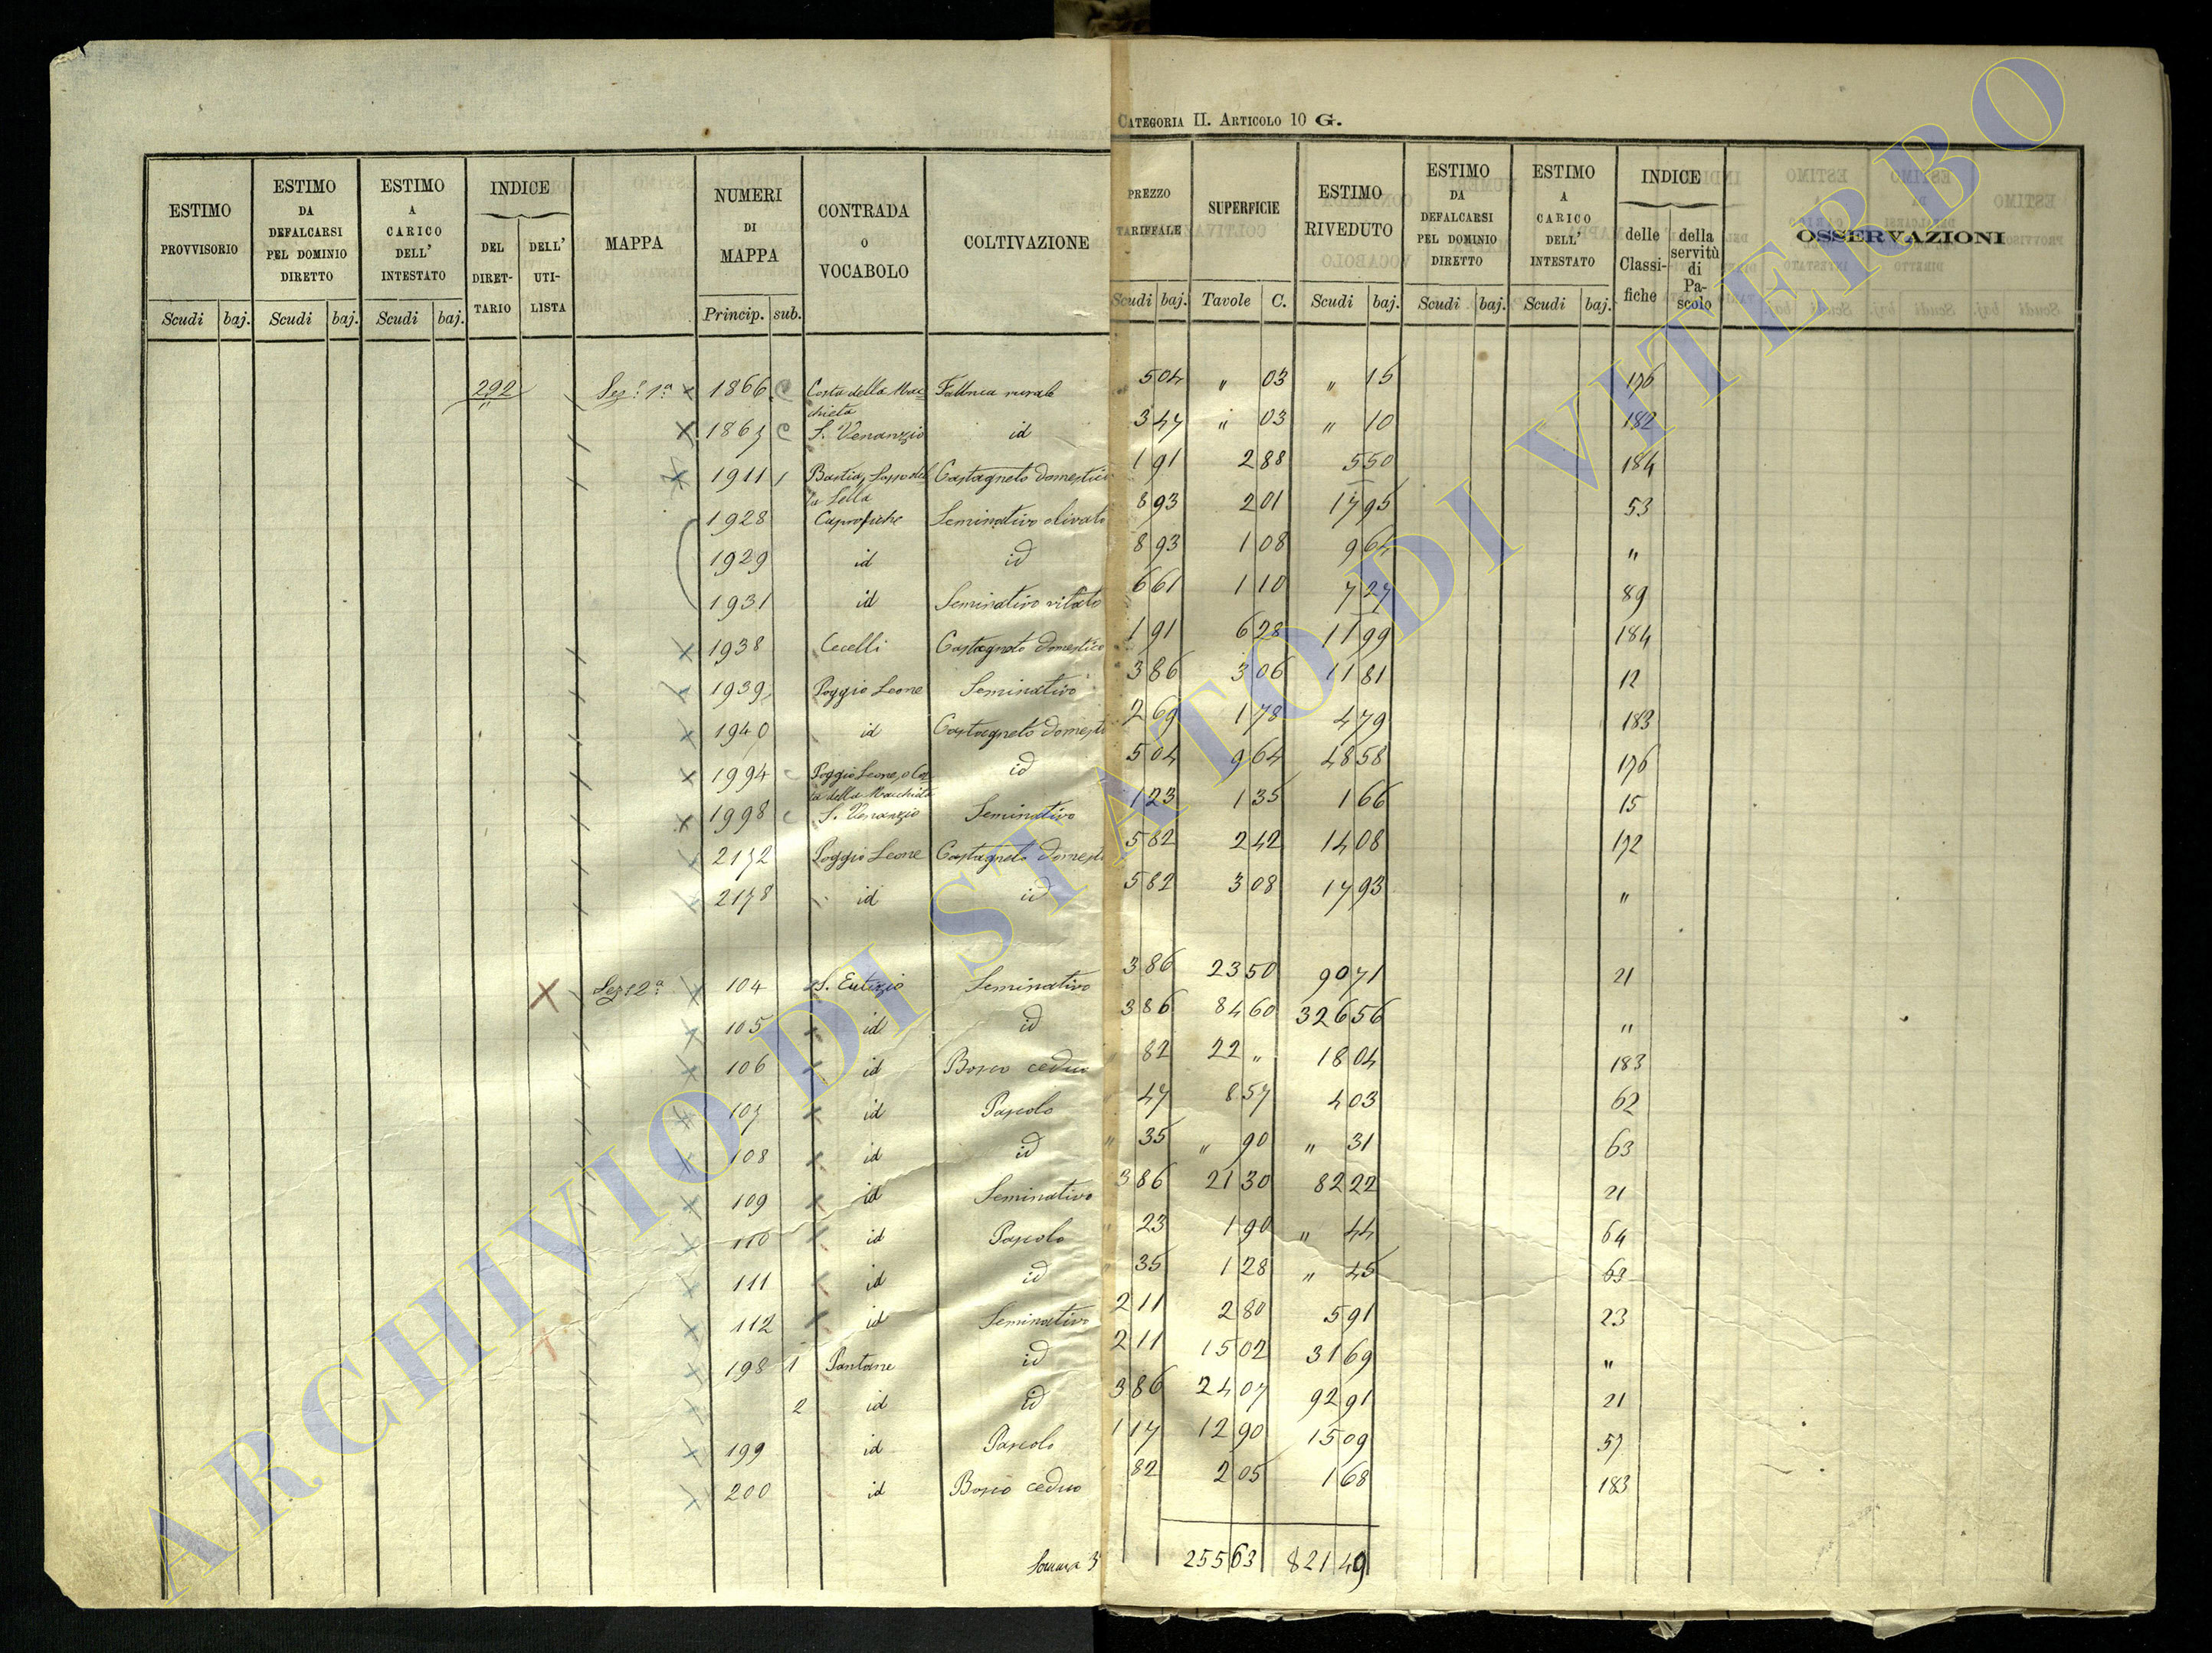 CATEGORIA II. ARTICOLO 10 G.
ESTIMO PROVVISORIO | ESTIMO DA DEFALCARSI PEL DOMINIO DIRETTO | ESTIMO A CARICO DELL' INTESTATO | INDICE DEL DIRETTARIO | DELL' UTILISTA | MAPPA | NUMERI DI MAPPA | CONTRADA O VOCABOLO | COLTIVAZIONE | PREZZO TARIFFALE | SUPERFICIE | ESTIMO RIVEDUTO | ESTIMO DA DEFALCARSI PEL DOMINIO DIRETTO | ESTIMO A CARICO DELL' INTESTATO | INDICE delle Classifiche | della servitù di Pascolo | OSSERVAZIONI
Scudi baj. Scudi baj. Scudi baj. Princip. sub. Scudi baj. Tavole C. Scudi baj. Scudi baj. Scudi baj.
292 Sez. 1a 1866 C Costa della Mac= 504 " 03 " 15 176
chieta
1867 C S. Venanzio id 347 " 03 " 10 182
1911 1 Castagneto domestico 191 288 550 184
la Sella
1928 Caprofiche Seminativo olivato 893 201 1795 53
1929 id id 893 108 964 "
1931 id Seminativo vitato 661 110 727 89
1938 Cecelli Castagneto domestico 191 628 1199 184
1939 Poggio Leone Seminativo 386 306 1181 12
1940 id Castagneto domesti 269 178 479 183
1994 C Poggio Leone, o Cos id 504 964 4858 176
ta della Macchieta
1998 C S. Venanzio Seminativo 123 135 166 15
2172 Poggio Leone Castagneto domesti 582 242 1408 172
2178 id id 582 308 1793 "
Sez. 2a 104 S. Eutizio Seminativo 386 2350 9071 21
105 id id 386 8460 32656 "
106 id Bosco ceduo 82 22 " 1804 183
107 id Pascolo 47 857 403 62
108 id id " 35 " 90 " 31 63
109 id Seminativo 386 2130 8222 21
110 id Pascolo " 23 190 " 44 64
111 id id " 35 128 " 45 63
112 id Seminativo 211 280 591 23
198 1 Pantane id 211 1502 3169 "
2 id id 386 2407 9291 21
199 id Pascolo 117 1290 1509 57
200 id Bosco ceduo 82 205 168 183
Somma 25563 82149
ARCHIVIO DI STATO DI VITERBO